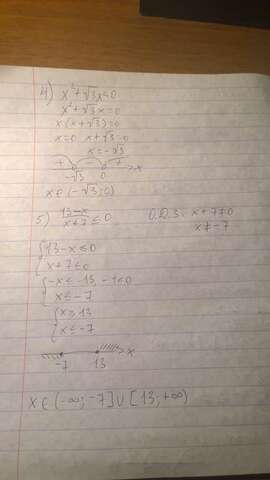 4) x² + √3x < 0
x² + √3x = 0
x(x + √3) = 0
x = 0 x + √3 = 0
x = -√3
+ - + x
-√3 0
x ∈ (-√3; 0)
5) (13-x)/(x+7) ≤ 0 О.Д.З: x + 7 ≠ 0
x ≠ -7
{ 13 - x ≤ 0
{ x + 7 ≤ 0
{ -x ≤ -13, -1 ≤ 0
{ x ≤ -7
{ x ≥ 13
{ x ≤ -7
-7 13 x
x ∈ (-∞; -7] ∪ [13; +∞)